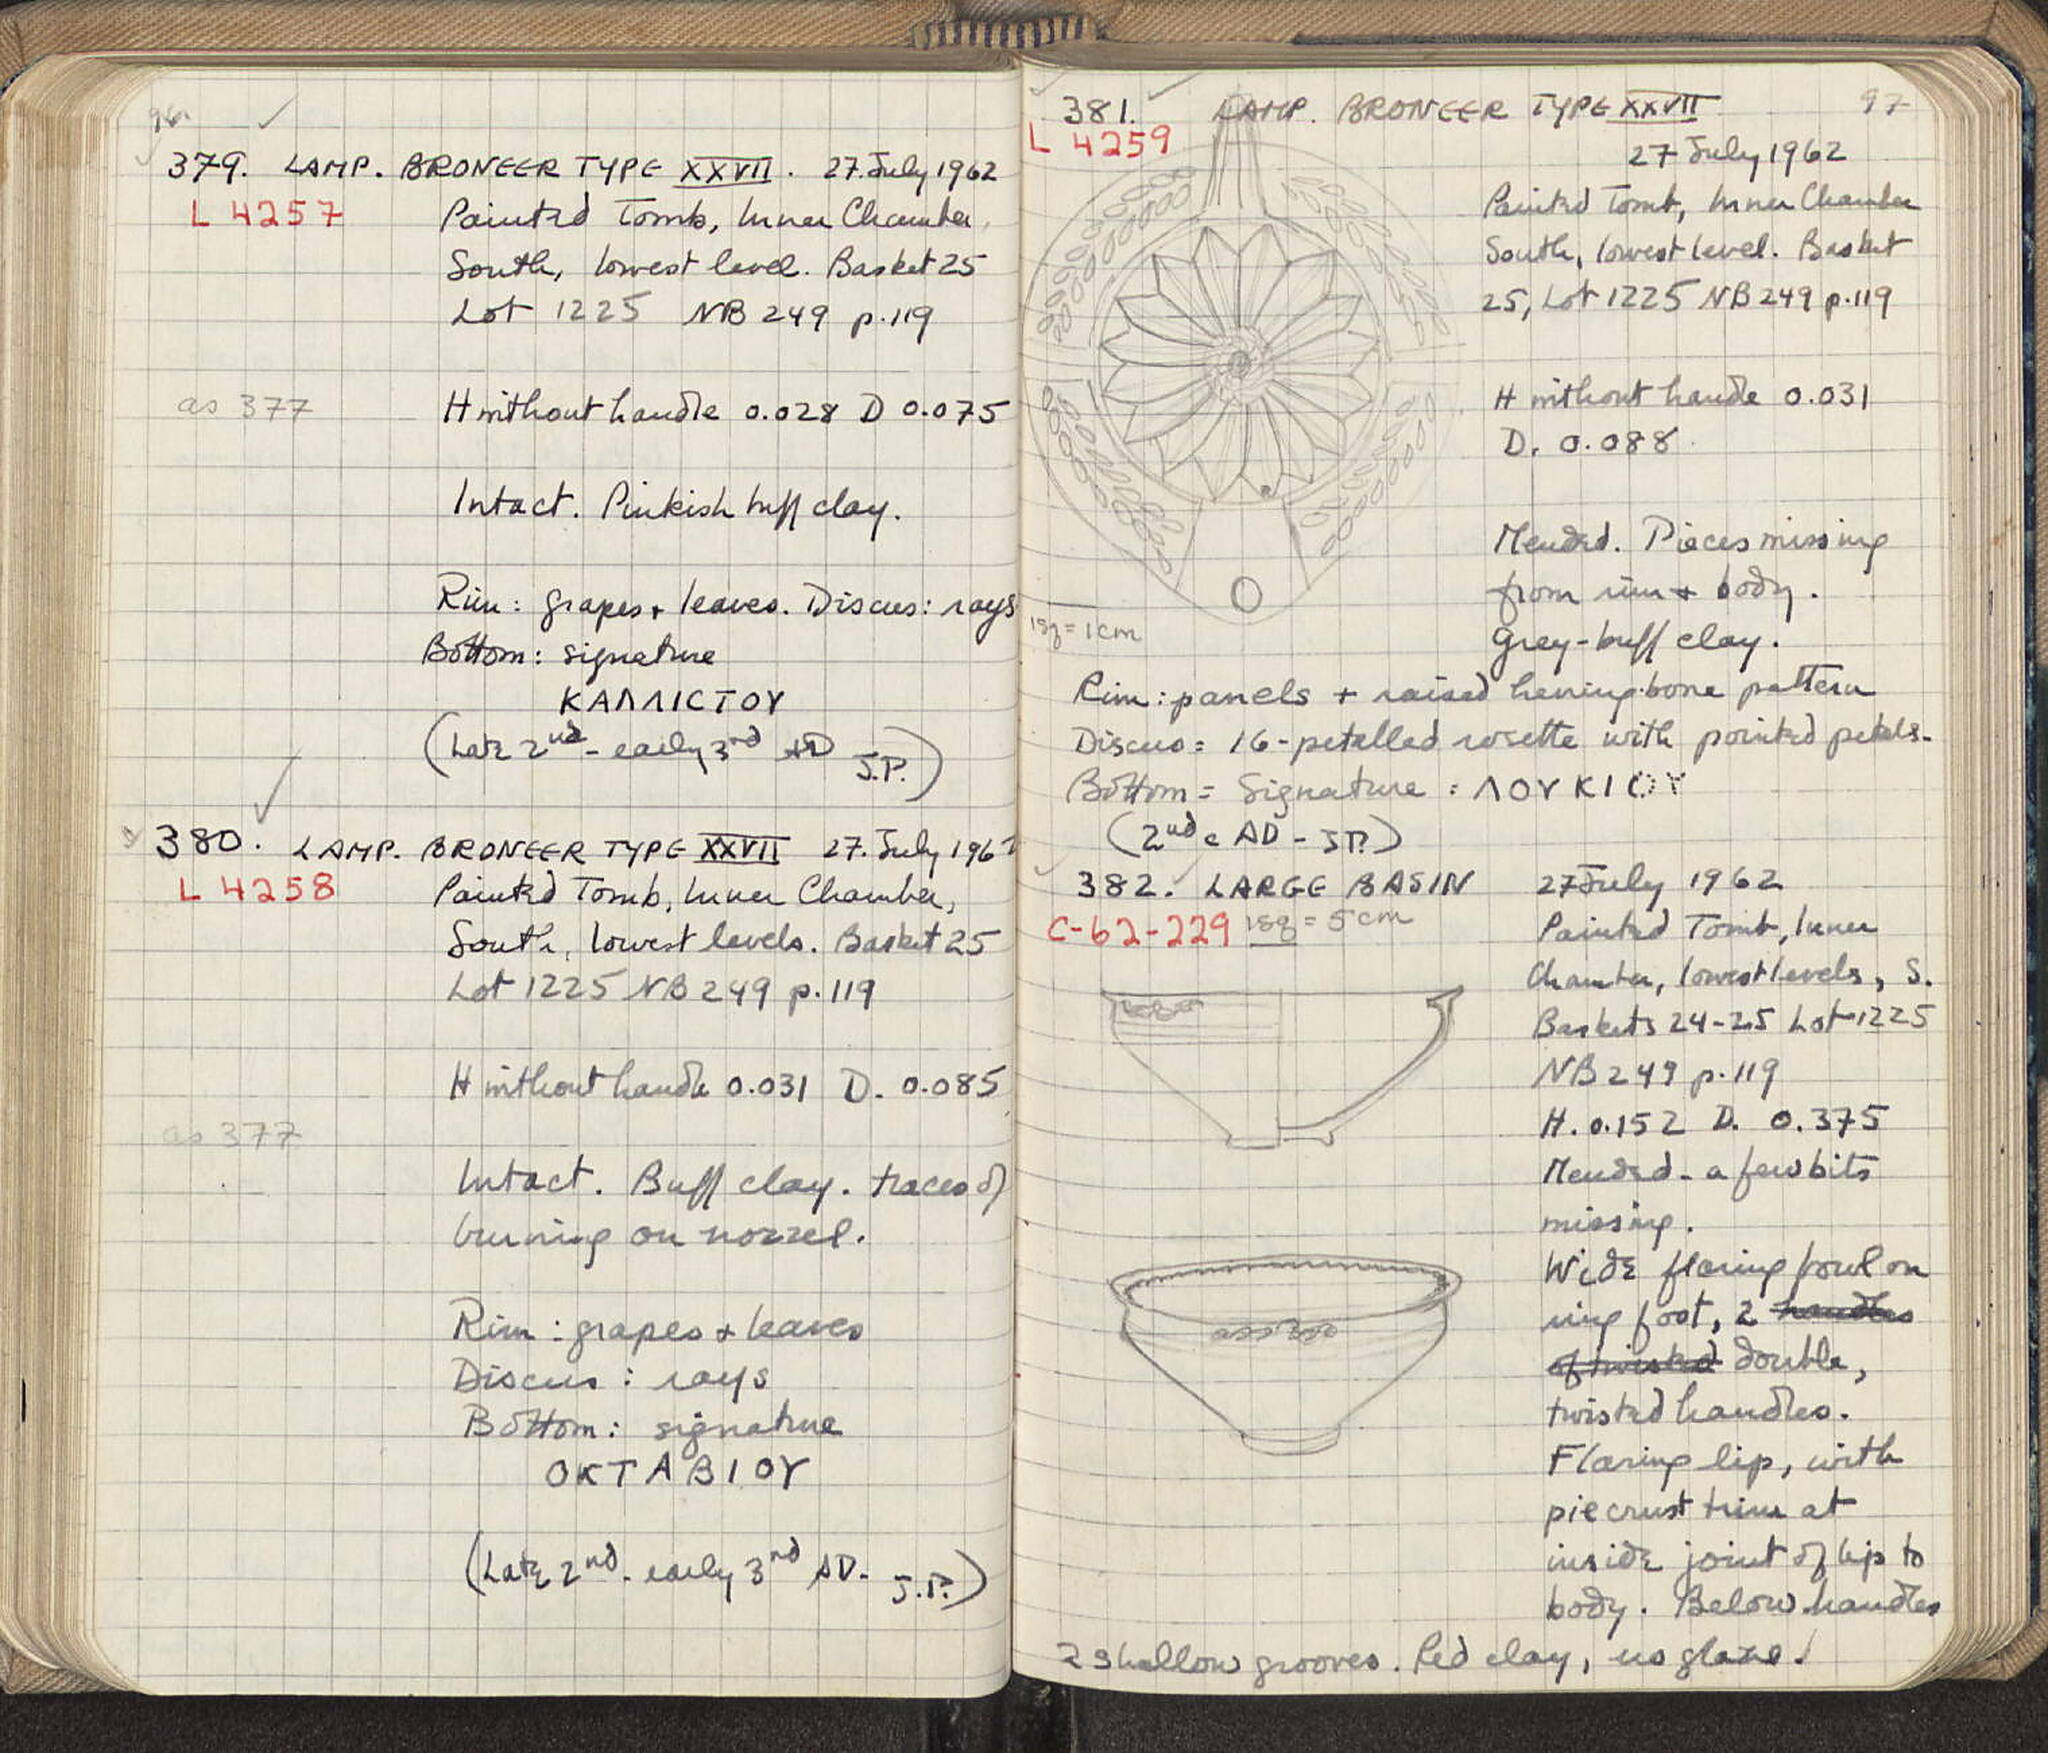 96.
379. LAMP. BRONEER TYPE XXVII. 27. July 1962
L 4257 Painted Tomb, Inner Chamber,
South, lowest level. Basket 25
Lot 1225 NB 249 p. 119
as 377 H without handle 0.028 D 0.075
Intact. Pinkish buff clay.
Rim: grapes + leaves. Discus: rays
Bottom: signature
ΚΑΛΛΙCΤΟΥ
(Late 2nd - early 3rd AD J.P.)
380. LAMP. BRONEER TYPE XXVII 27. July 1962
L 4258 Painted Tomb, Inner Chamber,
South, lowest levels. Basket 25
Lot 1225 NB 249 p. 119
H without handle 0.031 D. 0.085
as 377
Intact. Buff clay. traces of
burning on nozzel.
Rim: grapes + leaves
Discus: rays
Bottom: signature
ΟΚΤΑΒΙΟΥ
(Late 2nd - early 3rd AD - J.P.)
97
381. LAMP. BRONEER TYPE XXVII
L 4259
27 July 1962
Painted Tomb, Inner Chamber
South, lowest level. Basket
25, Lot 1225 NB 249 p. 119
H without handle 0.031
D. 0.088
Mended. Pieces missing
from rim + body.
Grey-buff clay.
1sq = 1cm
Rim: panels + raised herring-bone pattern
Discus = 16-petalled rosette with pointed petals.
Bottom = Signature: ΛΟΥΚΙΟΥ
(2nd c AD - J.P.)
382. LARGE BASIN 27 July 1962
C-62-229 1sq = 5cm
Painted Tomb, Inner
Chamber, lowest levels, S.
Baskets 24-25 Lot 1225
NB 249 p. 119
H. 0.152 D. 0.375
Mended - a few bits
missing.
Wide flaring bowl on
ring foot, 2 handles
of twisted double,
twisted handles.
Flaring lip, with
piecrust trim at
inside joint of lip to
body. Below handles
2 shallow grooves. Red clay, no glaze.